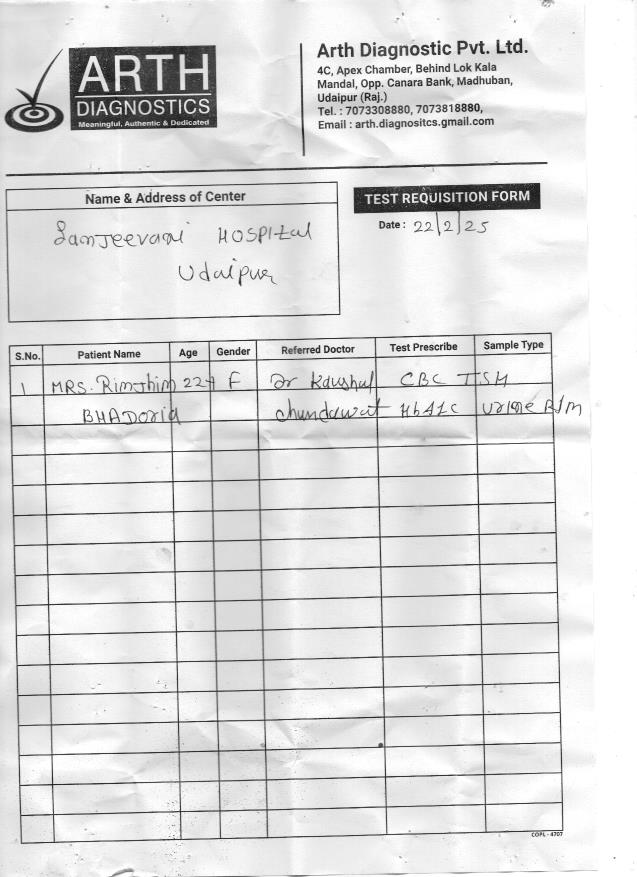 ARTH
DIAGNOSTICS
Meaningful, Authentic & Dedicated
Arth Diagnostic Pvt. Ltd.
4C, Apex Chamber, Behind Lok Kala
Mandal, Opp. Canara Bank, Madhuban,
Udaipur (Raj.)
Tel. : 7073308880, 7073818880,
Email : arth.diagnositcs.gmail.com
Name & Address of Center
Sanjeevani HOSPItal
Udaipur
TEST REQUISITION FORM
Date : 22/2/25
S.No. Patient Name Age Gender Referred Doctor Test Prescribe Sample Type
1 MRS. Rimjhim 22Y F Dr Kaushal CBC TSH
BHADORIA chundawat HbA1C urine R/M
COPL - 4707